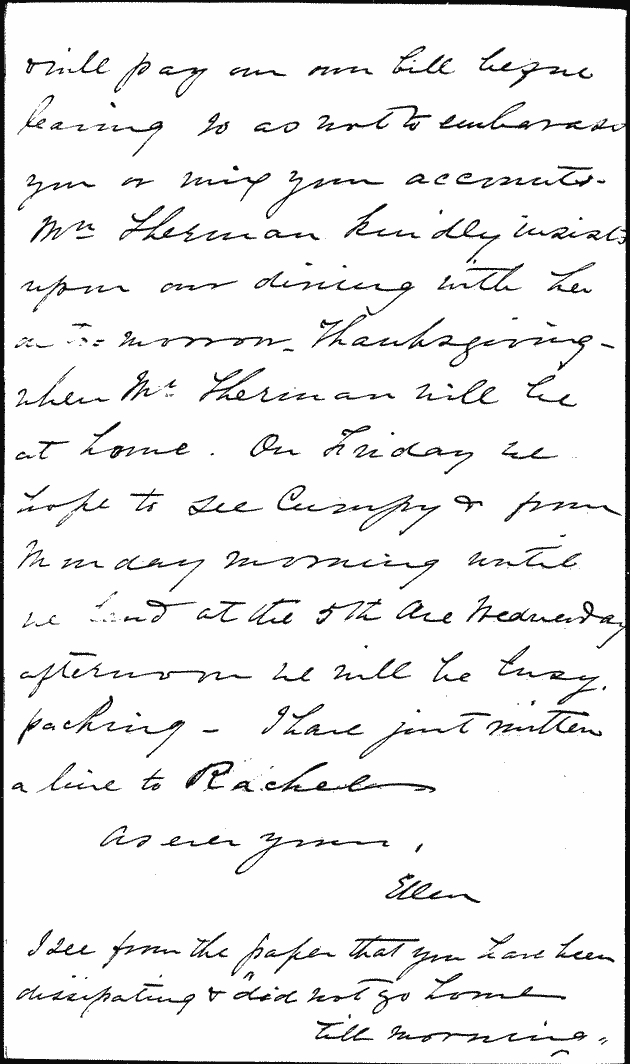 & will pay our own bill before
leaving so as not to embarass
you or mix your accounts.
Mrs Sherman kindly insists
upon our dining with her
on To-morrow - Thanksgiving -
when Mr Sherman will be
at home. On Friday we
hope to see Cumpy & from
Monday morning until
we land at the 5th Ave Wednesday
afternoon we will be busy.
packing - I have just written
a line to Rachel
As ever yours,
Ellen
I see from the paper that you have been
dissipating & "did not go home
till morning."